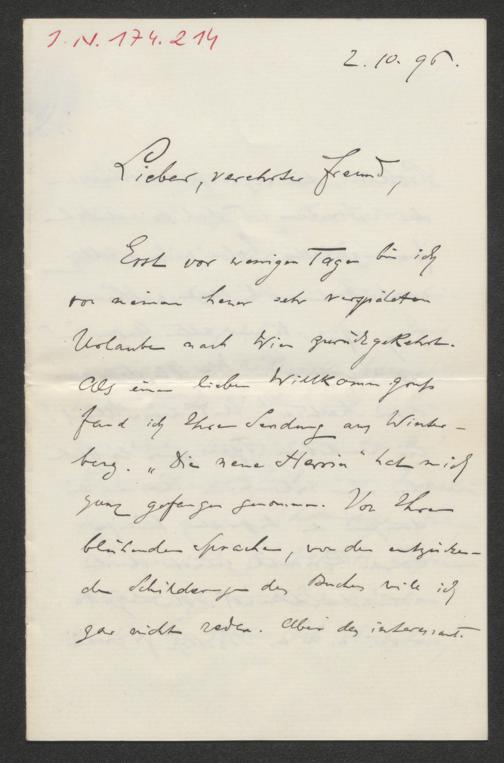 I. N. 174.214
2.10.96.
Lieber, verehrter Freund,
Erst vor wenigen Tagen bin ich
von meinem heuer sehr verspäteten
Urlaube nach Wien zurückgekehrt.
Als einen lieben Willkommgruß
fand ich Ihre Sendung aus Winter-
berg. „Die neue Herrin" hat mich
ganz gefangen genommen. Von Ihrer
blühenden Sprache, von den entzücken-
den Schilderungen des Buches will ich
gar nicht reden. Aber das interessant.